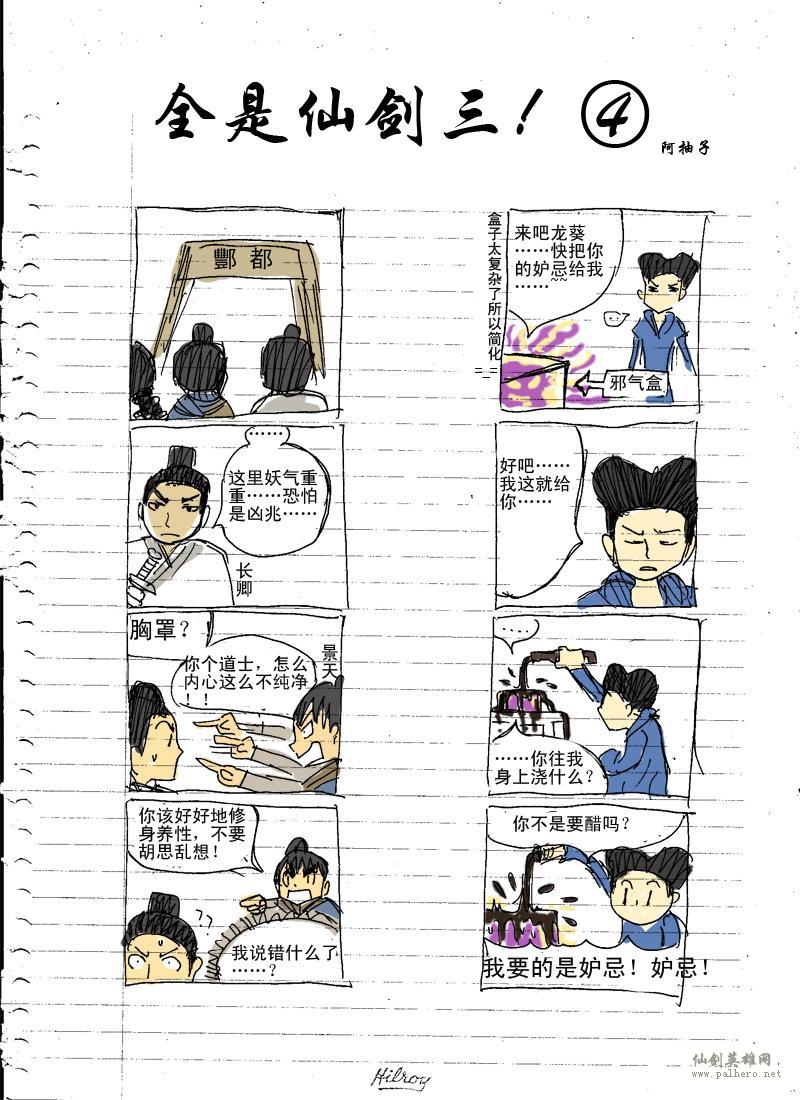 全是仙剑三！④
阿抽子
酆都
……
这里妖气重
重……恐怕
是凶兆……
长
卿
胸罩？！
景天
你个道士，怎么
内心这么不纯净
！！
你该好好地修
身养性，不要
胡思乱想！
??
我说错什么了
……？
盒子太复杂了所以简化
==
来吧龙葵
……快把你
的妒忌给我
……~~
…
邪气盒
好吧……
我这就给
你……
……
……你往我
身上浇什么？
你不是要醋吗？
我要的是妒忌！妒忌！
Hilroy
仙剑英雄网
www.palhero.net